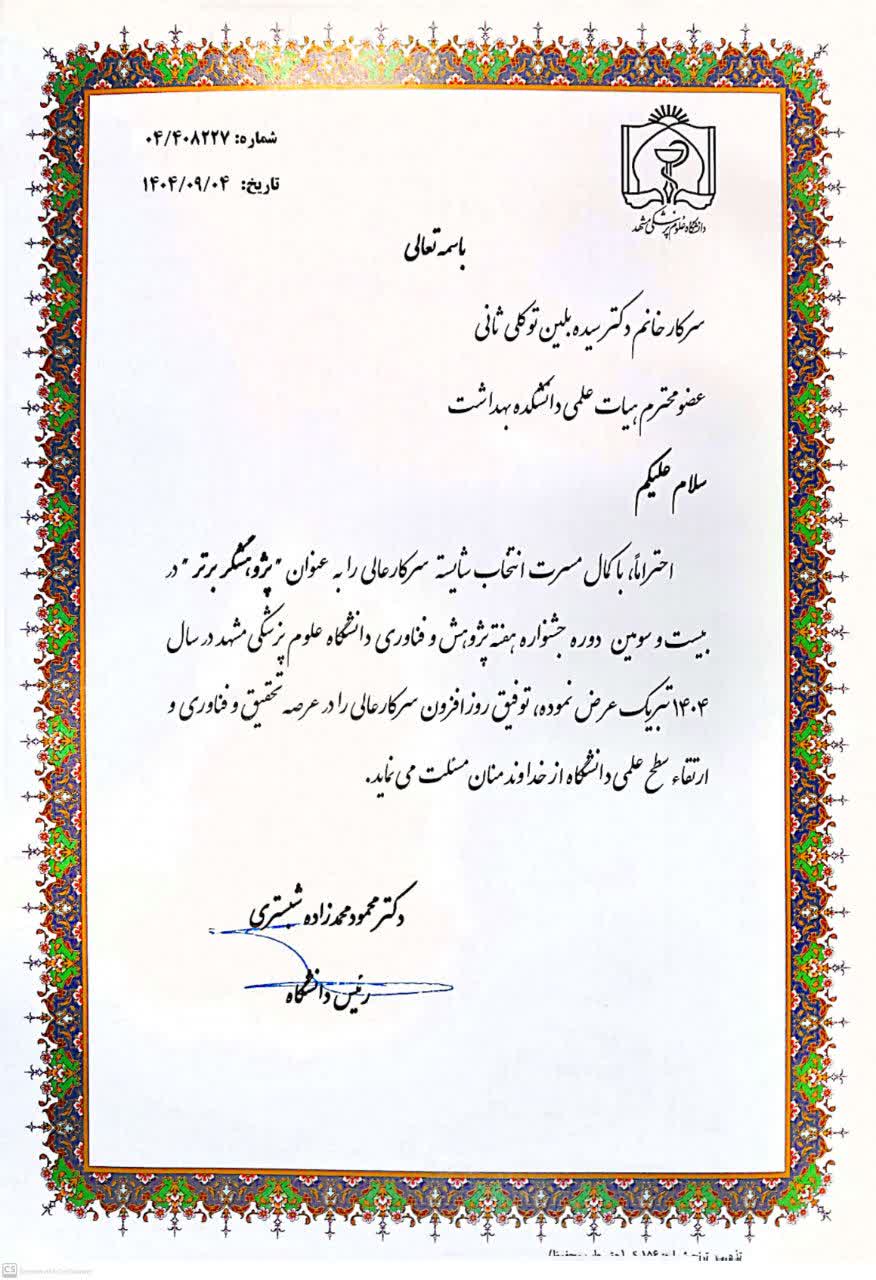 شماره: ۰۴/۴۰۸۲۲۷
تاریخ: ۱۴۰۴/۰۹/۰۴
دانشگاه علوم پزشکی مشهد
باسمه تعالی
سرکار خانم دکتر سیده بلین توکلی ثانی
عضو محترم هیات علمی دانشکده بهداشت
سلام علیکم
احتراماً، با کمال مسرت انتخاب شایسته سرکارعالی را به عنوان "پژوهشگر برتر" در
بیست و سومین دوره جشنواره هفته پژوهش و فناوری دانشگاه علوم پزشکی مشهد در سال
۱۴۰۴ تبریک عرض نموده، توفیق روزافزون سرکارعالی را در عرصه تحقیق و فناوری و
ارتقاء سطح علمی دانشگاه از خداوند منان مسئلت می نماید.
دکتر محمود محمدزاده شبستری
رئیس دانشگاه
CS